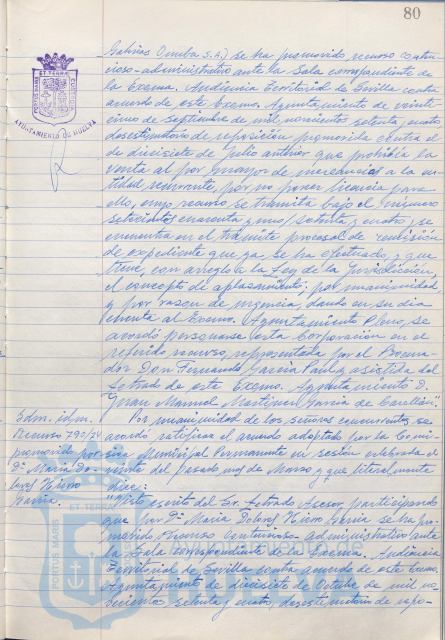 80
Galerías Onuba S.A.) se ha promovido recurso conten-
cioso-administrativo ante la Sala correspondiente de
la Excma. Audiencia Territorial de Sevilla contra
acuerdo de este Excmo. Ayuntamiento de veinti-
cinco de septiembre de mil novecientos setenta y cuatro
desestimatorio de reposición promovida contra el
de diecisiete de Julio anterior que prohibía la
venta al por mayor de mercancías a la en-
tidad recurrente, por no poseer licencia para
ello, cuyo recurso se tramita bajo el número
setecientos cuarenta y uno/setenta y cuatro y se
encuentra en el trámite procesal de remisión
de expediente que ya se ha efectuado, y que
tiene, con arreglo a la Ley de la Jurisdicción,
el concepto de aplazamiento; por unanimidad
y por razón de urgencia, dando en su día
cuenta al Excmo. Ayuntamiento Pleno, se
acordó personarse esta Corporación en el
referido recurso, representada por el Procura-
dor Don Fernando García Paul y asistida del
Letrado de este Excmo. Ayuntamiento D.
Juan Manuel García de
Por unanimidad de los señores concurrentes se
acordó ratificar el acuerdo adoptado por la Comi-
sión Municipal Permanente en sesión celebrada el
del pasado mes de Marzo y que literalmente
dice:
"Visto escrito del Sr. Letrado Asesor participando
que por Dª María Dolores García se ha pro-
movido Recurso contencioso-administrativo ante
la Sala correspondiente de la Excma. Audiencia
Territorial de Sevilla contra acuerdo de este Excmo.
Ayuntamiento de diecisiete de Octubre de mil no-
vecientos setenta y cuatro, desestimatorio de repo-
Idm. idm.
Recurso 790/74
promovido por
Dª María Do-
lores
García.
AYUNTAMIENTO DE HUELVA
PORTUS MARIS
ET TERRA
CUSTODIA